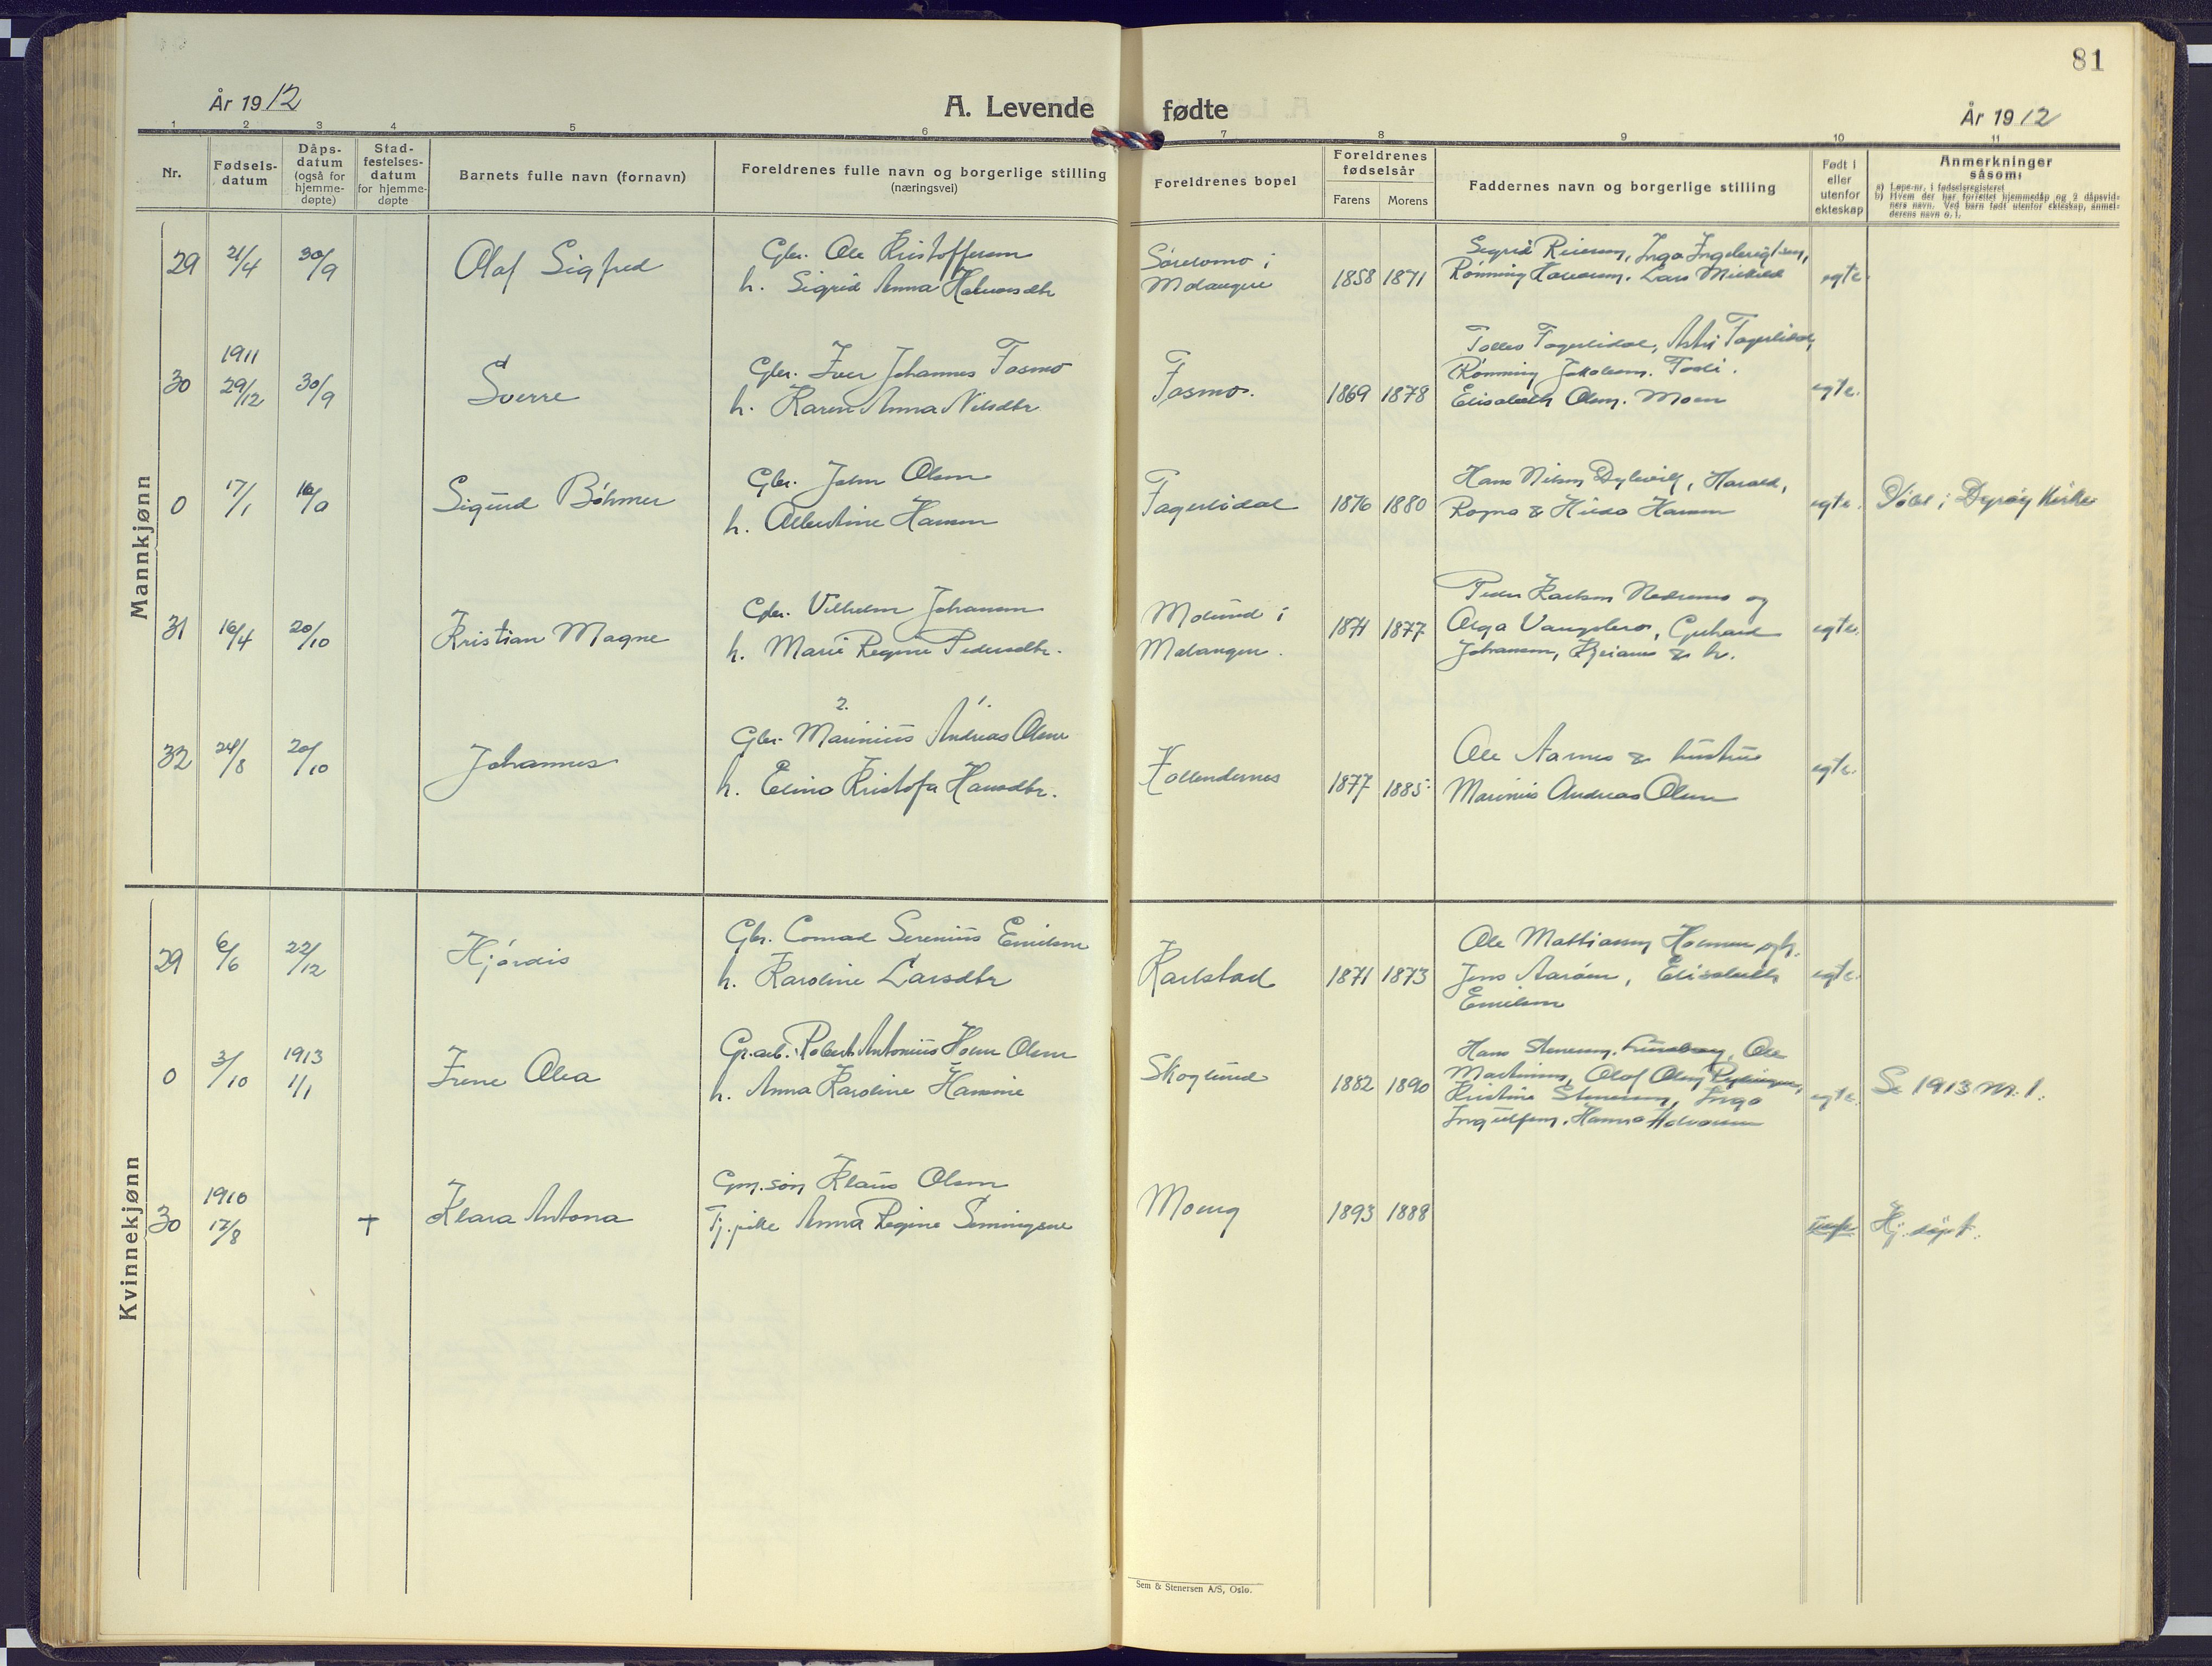 81
År 1912
A. Levende fødte
År 1912
1 2 3 4 5 6 7 8 9 10 11
Nr.
Fødsels-
datum
Dåps-
datum
(også for
hjemme-
døpte)
Stad-
festelses-
datum
for hjemme-
døpte
Barnets fulle navn (fornavn)
Foreldrenes fulle navn og borgerlige stilling
(næringsvei)
Foreldrenes bopel
Foreldrenes
fødselsår
Farens Morens
Faddernes navn og borgerlige stilling
Født i
eller
utenfor
ekteskap
Anmerkninger
såsom:
a) Løpe-nr. i fødselsregisteret
b) Hvem der har forrettet hjemmedåp og 2 dåpsvid-
ners navn. Ved barn født utenfor ekteskap, anmel-
derens navn o. l.
Mannkjønn
29 21/4 30/9 Olaf Sigfred
Gbr. Ole Kristoffersen
h. Sigrid Anna Halvorsdtr
Målangen 1858 1871
Sigrid Reiersen, Inga Ingebrigtsen,
Rønning Lars
egte
30 1911
29/12 30/9 Sverre
Gbr. Iver Johannes Fosmo
h. Karen Anna Nilsdtr
Fosmo. 1869 1878
Fagerlidal, Fagerlidal,
Rønning Jakobsen.
Elisabeth Olsen. Moen
egte.
0 17/1 Sigurd Bøhmer
Gbr. John Olsen
h. Albertine Hansen
Fagerlidal 1876 1880
Hans Nilsen Harald,
Ragna & Hilda Hansen
egte. Døbt i Dyrøy Kirke
31 16/4 20/10 Kristian Magne
Gbr. Vilhelm Johansen
h. Marie Regine Pedersdtr.
Molund i
Malangen. 1871 1877
Peder Karlsen og
Olga Gerhard
Johansen, & h.
egte.
32 24/8 20/10 Johannes
2. 1.
Gbr. Marinius Andreas Olsen
h. Elina Kristofa Hansdtr.
1877 1885
Ole Aarnes & hustru
Marinius Andreas Olsen
egte.
Kvinnekjønn
29 6/6 22/12 Hjørdis
Gbr. Conrad Serenius Emilsen
h. Karoline Larsdtr
Karlstad 1871 1873
Ole Mathiassen Holmen og h.
Jens Elisabeth
Emilsen
egte.
0 3/10 1913
1/1 Irene Olea
Gr.arb. Robert Antonius Olsen
h. Anna Karoline
Skoglund 1882 1890
Hans Stenersen, Ole
Martinsen, Olaf Olsen
Kristine Stenersen, Inga
Ingulfsen, Hanna Halvorsen
egte. Se 1913 nr. 1.
30 1910
17/8 + Klara Antona
Gm.søn Klaus Olsen
Tj.pike Anna Regine Simmingsen
Moen 1893 1888
Hj. døpt.
Sem & Stenersen A/S, Oslo.